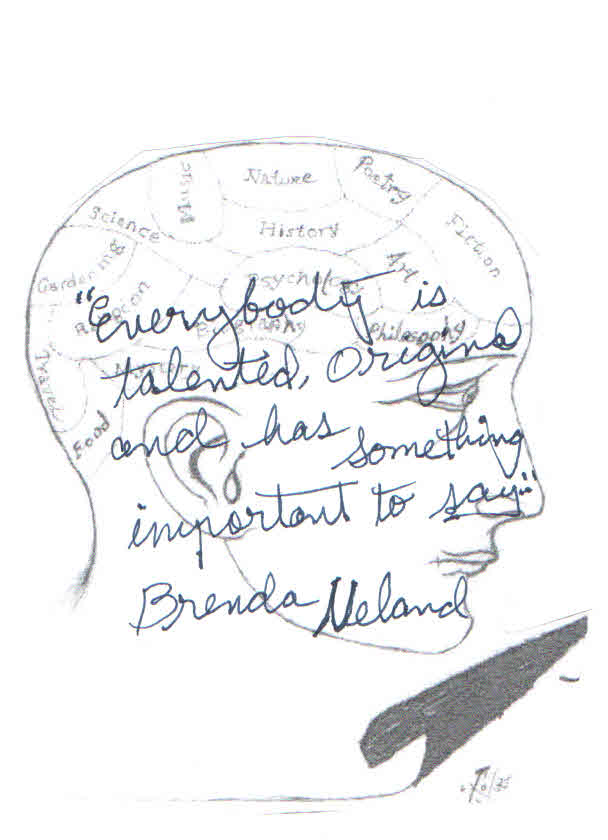 Nature
Poetry
Music
Science
History
Fiction
Gardening
Psychology
Art
Religion
Biography
Philosophy
Travel
Mystery
Food
"Everybody is
talented, Original
and has something
important to say"
Brenda Ueland